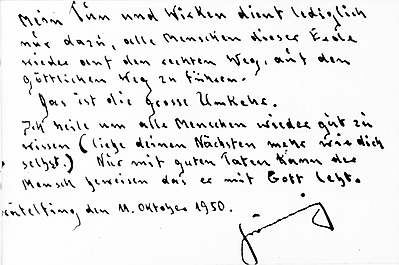 Mein Tun und Wirken dient lediglich
nur dazu, alle Menschen dieser Erde
wieder auf den rechten Weg, auf den
göttlichen Weg zu führen.
Das ist die grosse Umkehr.
Ich heile um alle Menschen wieder gut zu
wissen (liebe deinen Nächsten mehr wie dich
selbst.) Nur mit guten Taten kann der
Mensch beweisen das er mit Gott lebt.
den 11. Oktober 1950.